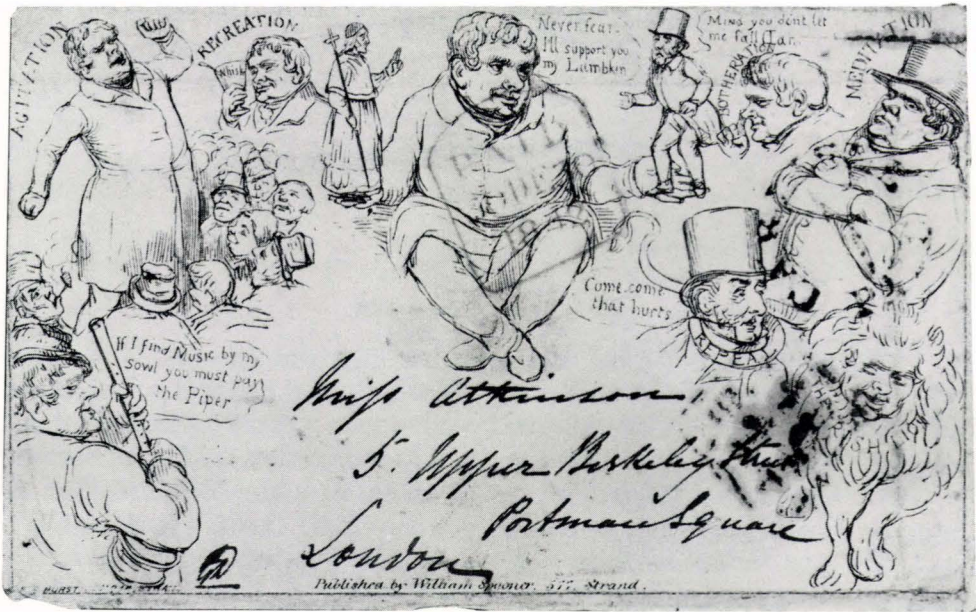 AGITATION
RECREATION
Whisk
Never fear.
I'll support you
my Lambkin
Mind you dont let
me fall Dan.
BOTHERATION
MEDITATION
PAID
Come.come
that hurts
REPEAL
If I find Music by my
sowl you must pay
the Piper
Miss Atkinson
5. Upper Berkeley Street
Portman Square
London
Published by William Spooner, 377, Strand.
HURST